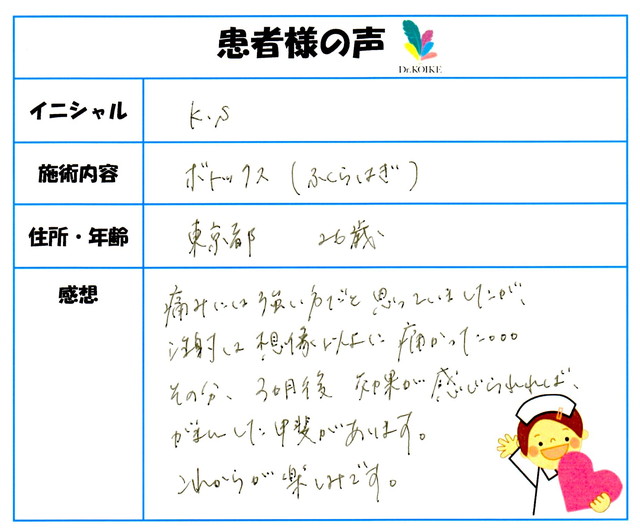 患者様の声
Dr.KOIKE
イニシャル
K.S
施術内容
ボトックス (ふくらはぎ)
住所・年齢
東京都 26歳
感想
痛みには強い方だと思っていましたが、
注射は想像以上に痛かった...
その分、3ヵ月後 効果が感じられれば、
がまんした甲斐があります。
これからが楽しみです。